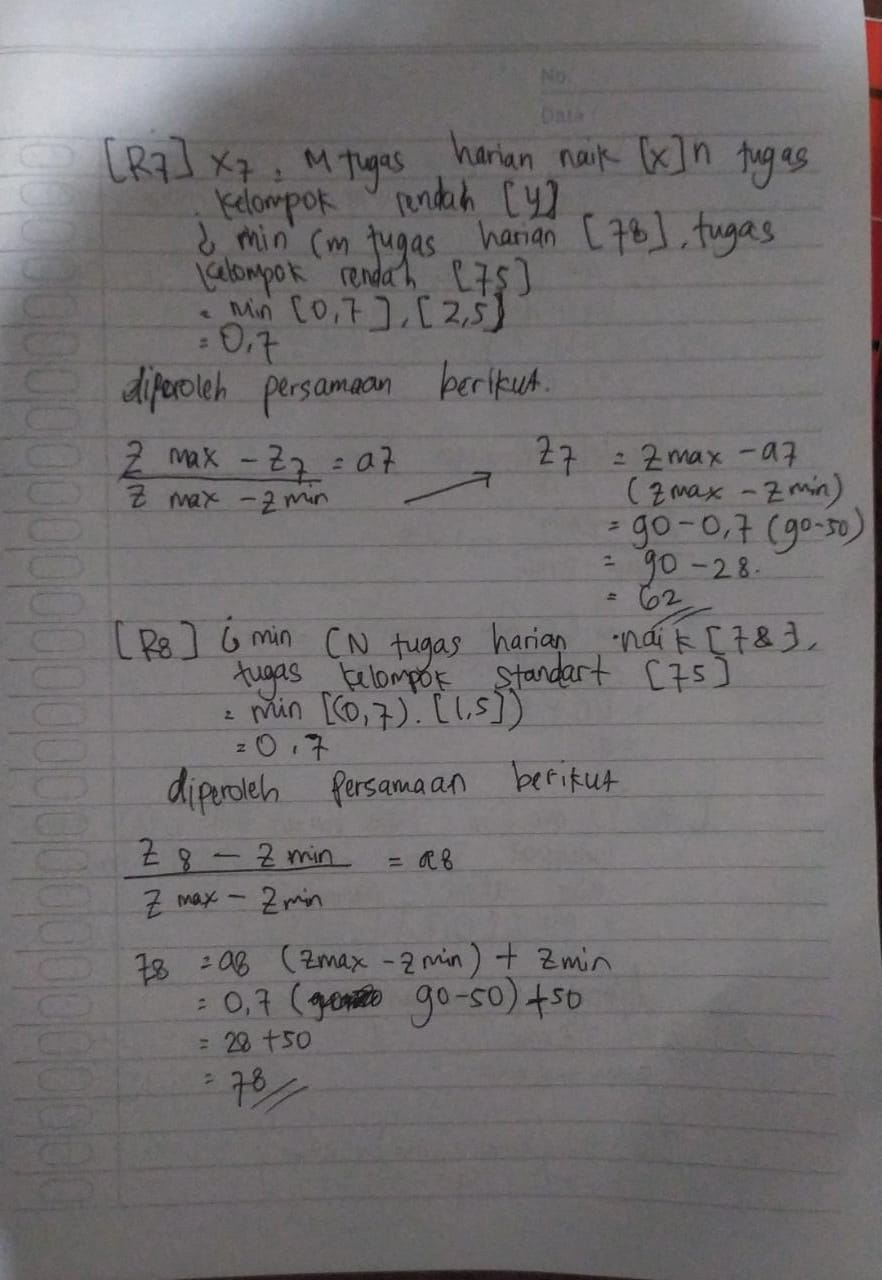 No.
Date
[R7] x7, M tugas harian naik [x] n tugas
kelompok rendah [y]
¿ min (m tugas harian [78], tugas
kelompok rendah [75]
= min [0,7], [2,5]
= 0,7
diperoleh persamaan berikut.
Z max - Z7 / Z max - Z min = a7
Z7 = Z max - a7
(Z max - Z min)
= 90 - 0,7 (90-50)
= 90 - 28.
= 62
[R8] ¿ min (N tugas harian naik [78],
tugas kelompok standart [75]
= min [(0,7). [1,5])
= 0,7
diperoleh persamaan berikut
Z 8 - Z min / Z max - Z min = a8
78 = a8 (Z max - Z min) + Z min
= 0,7 ( 90-50) + 50
= 28 + 50
= 78